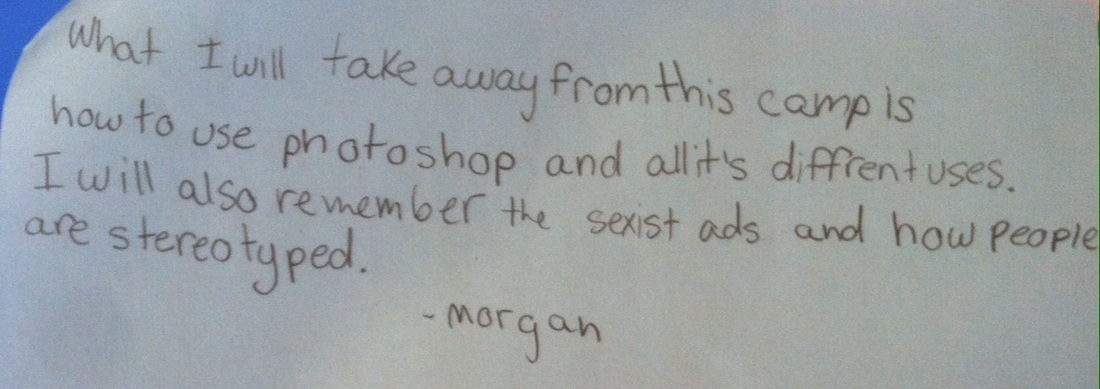 What I will take away from this camp is
how to use photoshop and all it's diffrent uses.
I will also remember the sexist ads and how people
are stereotyped.
-morgan